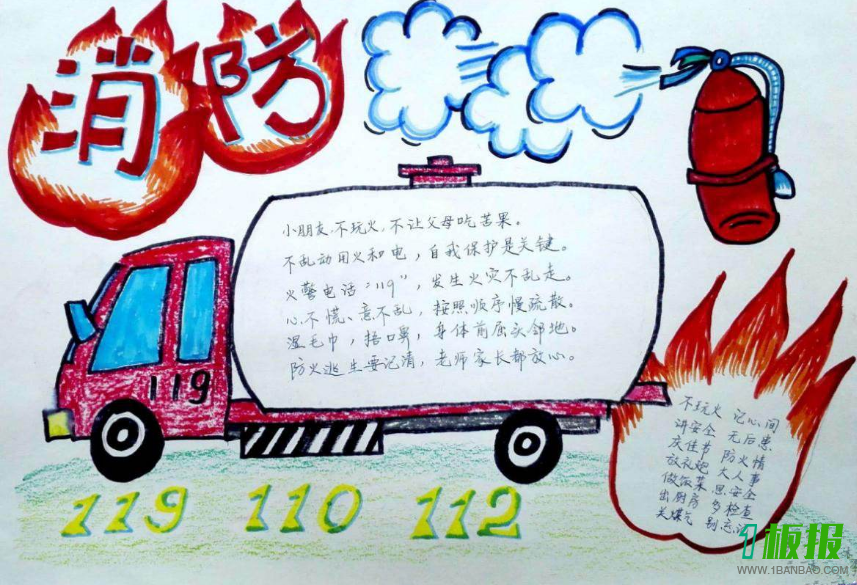 消防
小朋友、不玩火,不让父母吃苦果。
不乱动用火和电,自我保护是关键。
火警电话“119”,发生火灾不乱走。
心不慌、意不乱,按照顺序慢疏散。
湿毛巾,捂口鼻,身体前屈头邻地。
防火逃生要记清,老师家长都放心。
119
不玩火 记心间
讲安全 无后患
庆佳节 防火情
放礼炮 大人事
做饭菜 思安全
出厨房 多检查
关煤气 别忘
119 110 112
1板报
WWW.1BANBAO.COM